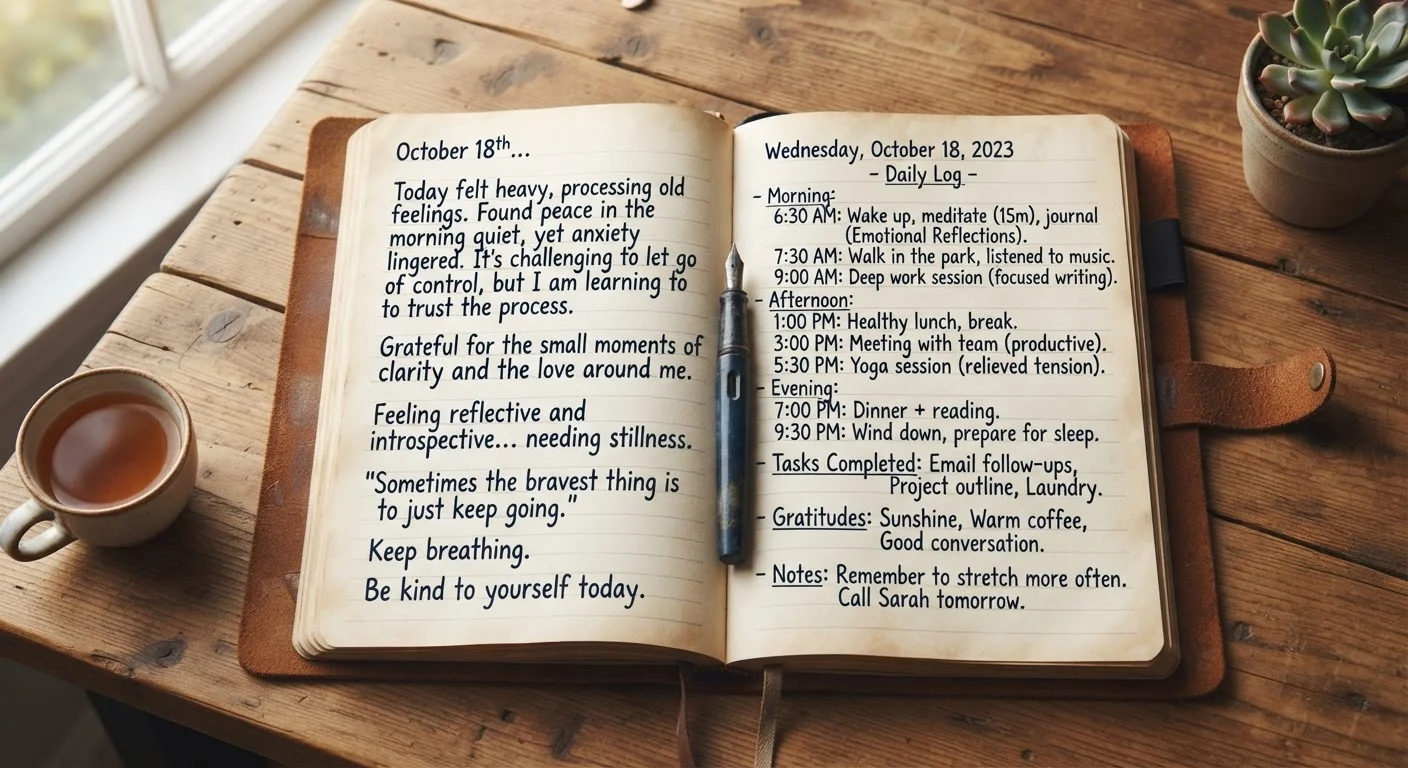 October 18th...
Today felt heavy, processing old
feelings. Found peace in the
morning quiet, yet anxiety
lingered. It's challenging to let go
of control, but I am learning to
to trust the process.
Grateful for the small moments of
clarity and the love around me.
Feeling reflective and
introspective... needing stillness.
"Sometimes the bravest thing is
to just keep going."
Keep breathing.
Be kind to yourself today.
Wednesday, October 18, 2023
- Daily Log -
- Morning:
6:30 AM: Wake up, meditate (15m), journal
(Emotional Reflections).
7:30 AM: Walk in the park, listened to music.
9:00 AM: Deep work session (focused writing).
- Afternoon:
1:00 PM: Healthy lunch, break.
3:00 PM: Meeting with team (productive).
5:30 PM: Yoga session (relieved tension).
- Evening:
7:00 PM: Dinner + reading.
9:30 PM: Wind down, prepare for sleep.
- Tasks Completed: Email follow-ups,
Project outline, Laundry.
- Gratitudes: Sunshine, Warm coffee,
Good conversation.
- Notes: Remember to stretch more often.
Call Sarah tomorrow.